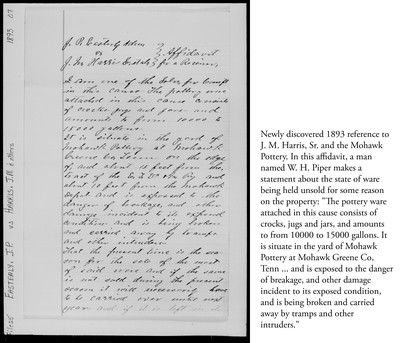 1893 07
J. P. Easterly Admr
vs
J. M. Harris Estate
Affidavit
for a Receiver,
I am one of the Sols, for Compl't
in this cause. The pottery ware
attached in this cause consists
of crocks, jugs and jars, and
amounts to from 10000 to
15000 gallons.
It is situate in the yard of
Mohawk Pottery at Mohawk
Greene Co, Tenn on the edge
of, and about 10 feet from the
track of the
and
about 10 feet from the Mohawk
depot and is exposed to the
danger of breakage, and other
damage incident to its exposed
condition and is being broken
and carried away by tramps
and other intruders.
That the present time is the sea-
son for the sale of the
of said ware and if the same
is not sold during the present
season it will necessarily have
to be carried over until next
year and if it is left in its
EASTERLY, J.P. vs HARRIS, J.M. & others
Newly discovered 1893 reference to
J. M. Harris, Sr. and the Mohawk
Pottery. In this affidavit, a man
named W. H. Piper makes a
statement about the state of ware
being held unsold for some reason
on the property: "The pottery ware
attached in this cause consists of
crocks, jugs and jars, and amounts
to from 10000 to 15000 gallons. It
is situate in the yard of Mohawk
Pottery at Mohawk Greene Co,
Tenn ... and is exposed to the danger
of breakage, and other damage
incident to its exposed condition,
and is being broken and carried
away by tramps and other
intruders."